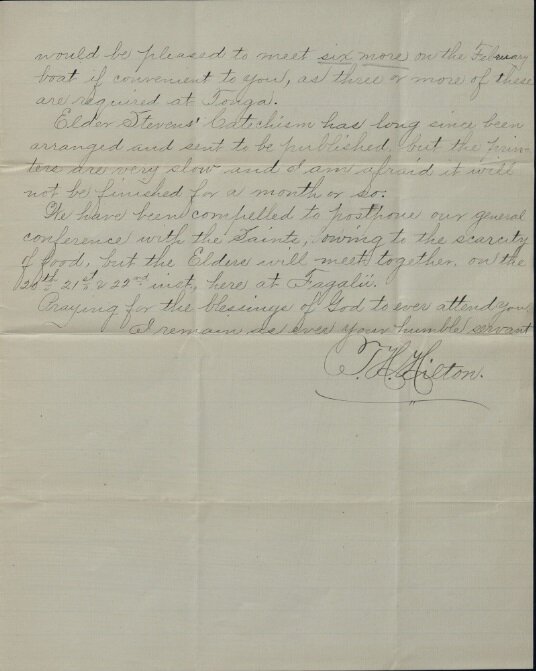 would be pleased to meet six more on the February
boat if convenient to you, as three or more of these
are required at Tonga.
Elder Stevens' Catechism has long since been
arranged and sent to be published, but the prin-
ters are very slow and I am afraid it will
not be finished for a month or so.
We have been compelled to postpone our general
conference with the Saints, owing to the scarcity
of food, but the Elders will meet together, on the
20th, 21st & 22nd inst, here at Fagalii.
Praying for the blessings of God to ever attend you
I remain as ever your humble servant
T. H. Hilton.